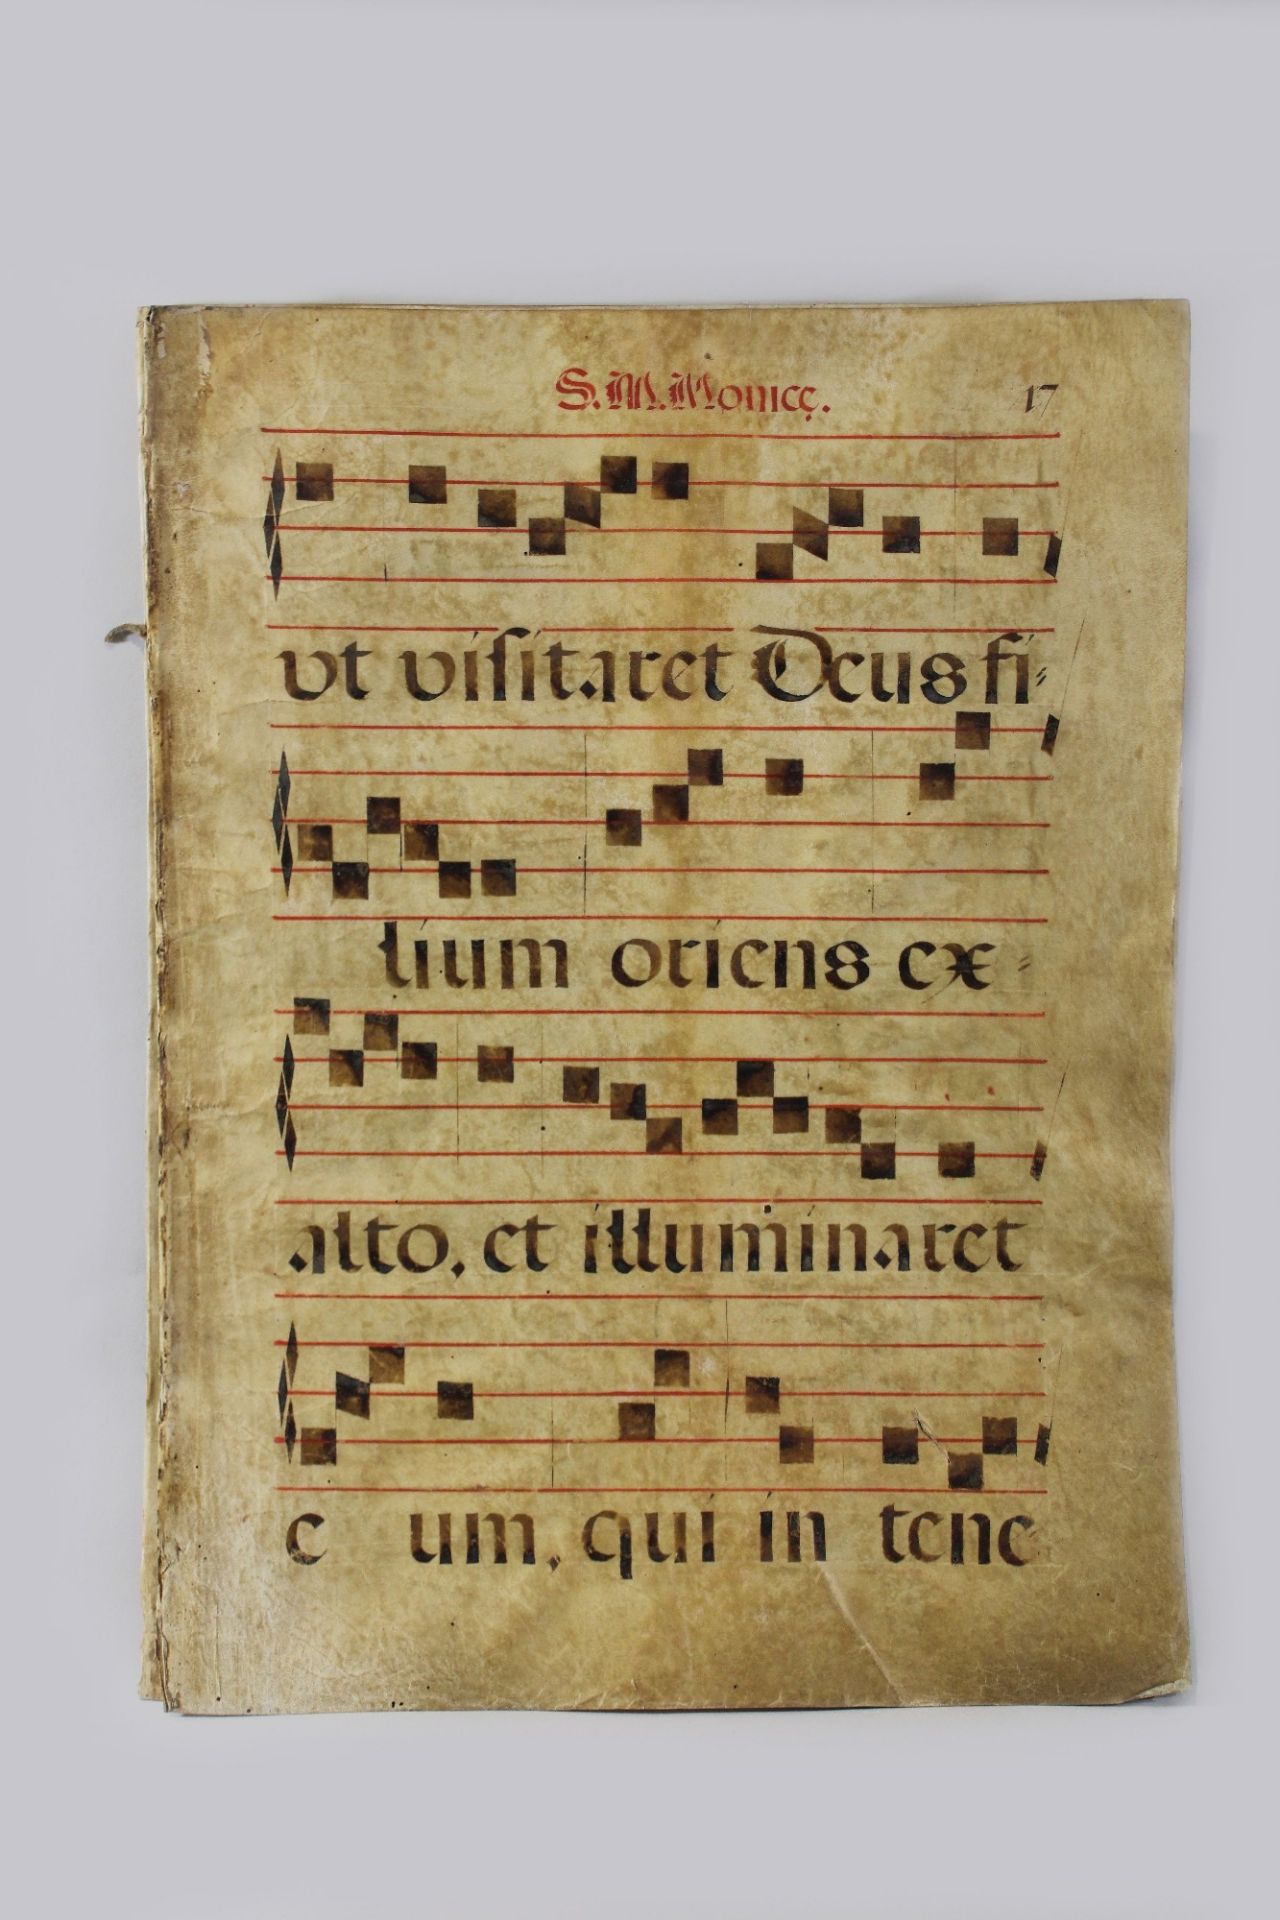 S. M. Monicę. 17
ut visitaret Deus fi-
lium oriens ex-
alto, et illuminaret
e um, qui in tene-